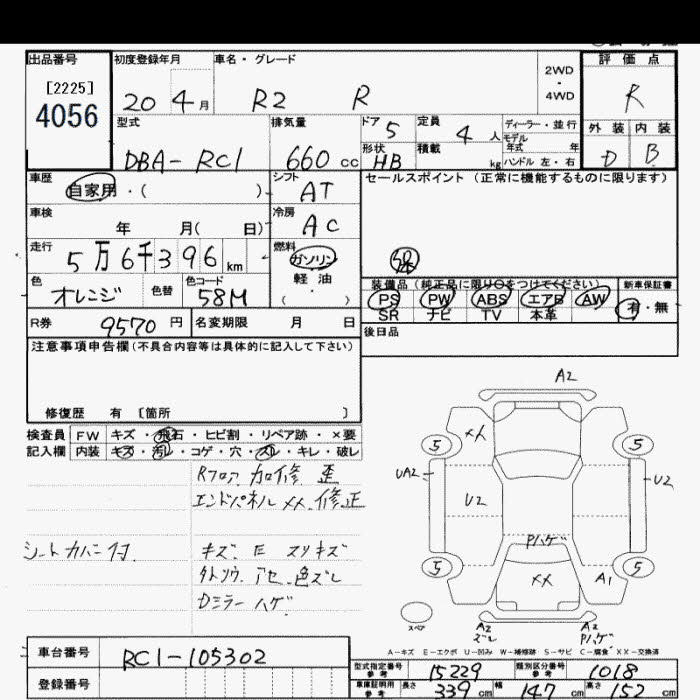 出品番号 初度登録年月 車名・グレード 2WD・4WD 評価点
[2225] 4056
20 4月 R2 R R
型式 排気量 ドア 5 定員 4人 ディーラー・並行 外装 内装
モデル年式 年
DBA-RC1 660cc 形状 HB 積載 kg ハンドル 左・右 D B
車歴 自家用・( ) シフト AT セールスポイント (正常に機能するものに限ります)
車検 年 月( 日) 冷房 AC
走行 5万6千396km 燃料 ガソリン 軽油 ( )
色 オレンジ 色替 色コード 58M
装備品 (純正品に限り○をつけてください) 新車保証書
PS PW ABS エアB AW 有・無
SR ナビ TV 本革
R券 9570円 名変期限 月 日 後日品
注意事項申告欄(不具合内容等は具体的に記入して下さい)
修復歴 有 [箇所 ]
検査員 FW キズ・飛石・ヒビ割・リペア跡・×要
記入欄 内装 キズ・汚レ・コゲ・穴・スレ・キレ・破レ
Rフロア 加修 歪
エンドパネル XX.修正
シートカバー付
キズ.E スリキズ
外ソウ アセ.色ズレ
Dミラー ハゲ
A2
XX
5 5
UA2 U2 U2
Pハゲ
5 XX A1 5
スペア A2 ズレ A2 Pハゲ
A-キズ E-エクボ U-凹み W-補修跡 S-サビ C-腐食 XX-交換済
車台番号 RC1-105302
型式指定番号 参考 15229 類別区分番号 参考 1018
登録番号
車庫証明用 参考 長さ 339cm 幅 147cm 高さ 152cm